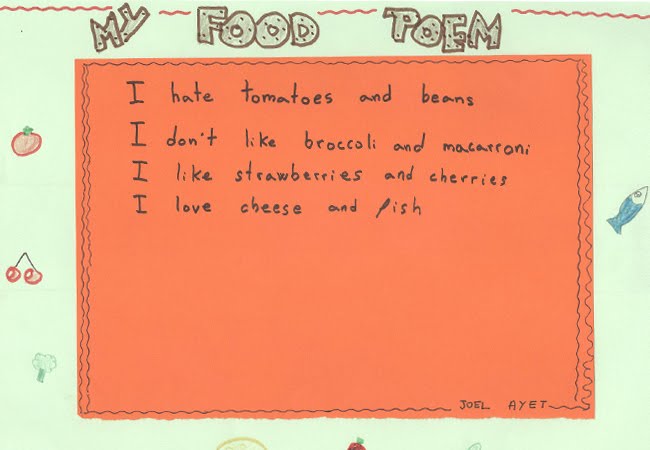 MY FOOD POEM
I hate tomatoes and beans
I don't like broccoli and macarroni
I like strawberries and cherries
I love cheese and fish
JOEL AYET